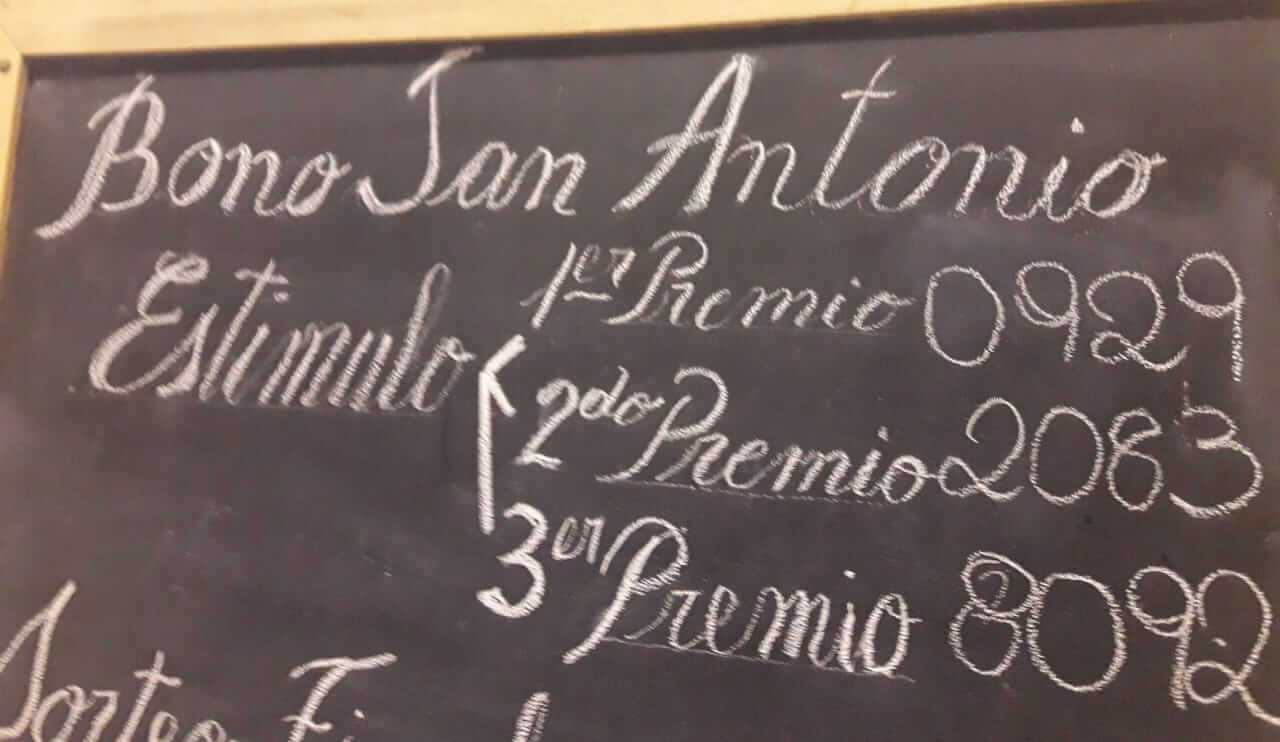 Bono San Antonio
Estimulo 1er Premio 0929
2do Premio 2083
3er Premio 8092
Sorteo